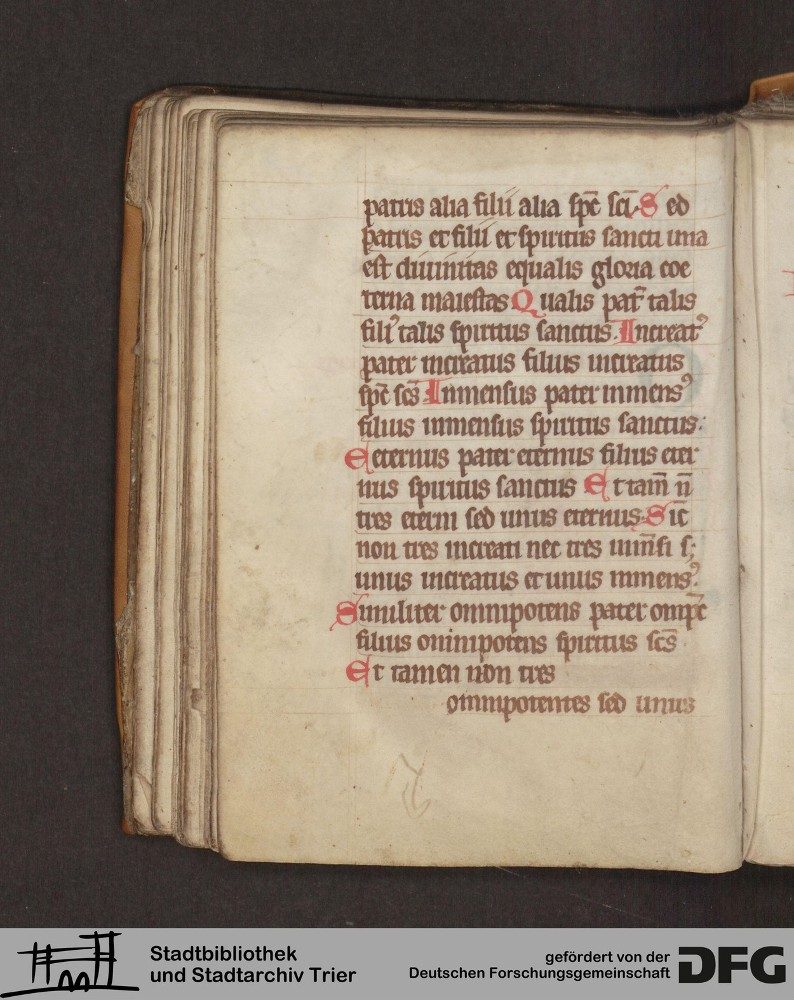 patris alia filii alia sp̄c sci. Sed
patris et filii et spiritus sancti una
est diuinitas equalis gloria coe
terna maiestas Qualis pat᷑ talis
fili⁹ talis spiritus sanctus. Increat⁹
pater increatus filius increatus
sp̄c sc̄s Inmensus pater inmens⁹
filius inmensus spiritus sanctus.
Eeternus pater eternus filius eter
nus spiritus sanctus Et tam̄ n̄
tres eterni sed unus eternus. Sic̄
non tres increati nec tres inm̄si s;
unus increatus et unus inmens⁹.
Similiter omnipotens pater omp̄c
filius omnipotens spiritus sc̄s
Et tamen non tres
omnipotentes sed unus
Stadtbibliothek
und Stadtarchiv Trier
gefördert von der
Deutschen Forschungsgemeinschaft
DFG